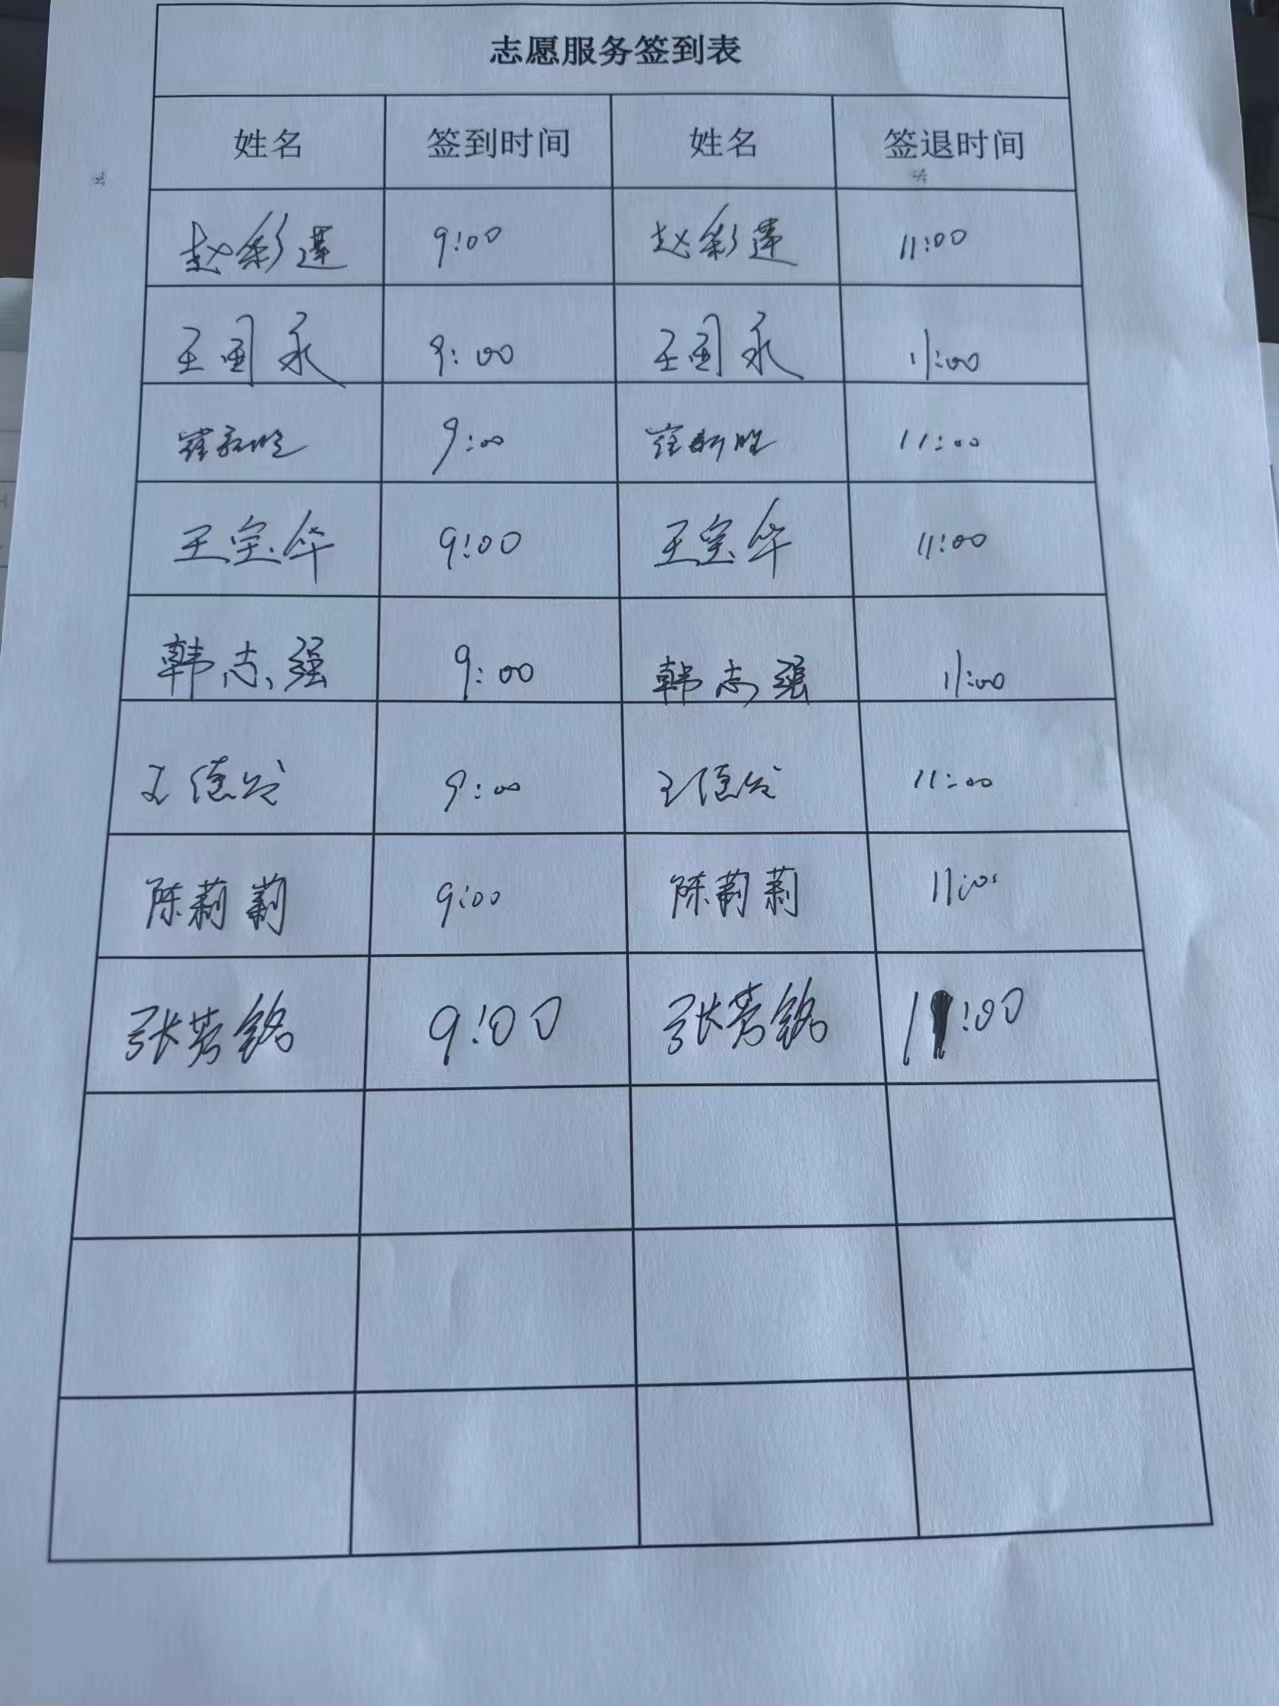 志愿服务签到表
姓名 签到时间 姓名 签退时间
赵彩莲 9:00 赵彩莲 11:00
王国永 9:00 王国永 11:00
崔新胜 9:00 崔新胜 11:00
王宝华 9:00 王宝华 11:00
韩志强 9:00 韩志强 11:00
王德公 9:00 王德公 11:00
陈莉莉 9:00 陈莉莉 11:00
张芳铭 9:00 张芳铭 11:00